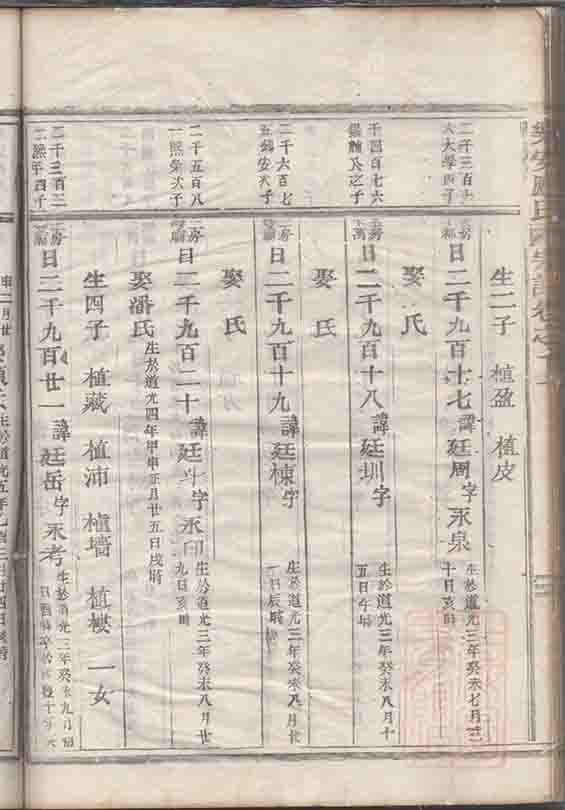 生二子 植盈 植皮
二千三百十
大大學四子
二房
曰二千九百十七諱廷周字永泉
生於道光三年癸未七月
十日亥時
娶氏
千四百七六
錫麟公之子
房
曰二千九百十八諱廷圳字
生於道光三年癸未八月十
五日午時
娶氏
二千六百七
五錫安大子
二房
曰二千九百十九諱廷棟字
生於道光三年癸未八月廿
一日辰時
娶氏
二千五百八
一熙榮大子
二房
曰二千九百二十諱廷斗字永印
生於道光三年癸未八月廿
九日亥時
娶潘氏
生於道光四年甲申正月廿五日戌時
生四子 植藏 植沛 植墻 植樓 一女
二千三百二
二熙年四子
二房
曰二千九百廿一諱廷岳字永考
生於道光三年癸未九月